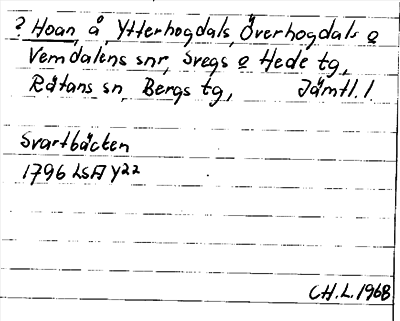 ? Hoan, å, Ytterhogdals, Överhogdals o
Vemdalens snr, Svegs o Hede tg,
Rätans sn, Bergs tg, Jämtl. l.
Svartbäcken
1796 LSA Y22
CH.L. 1968